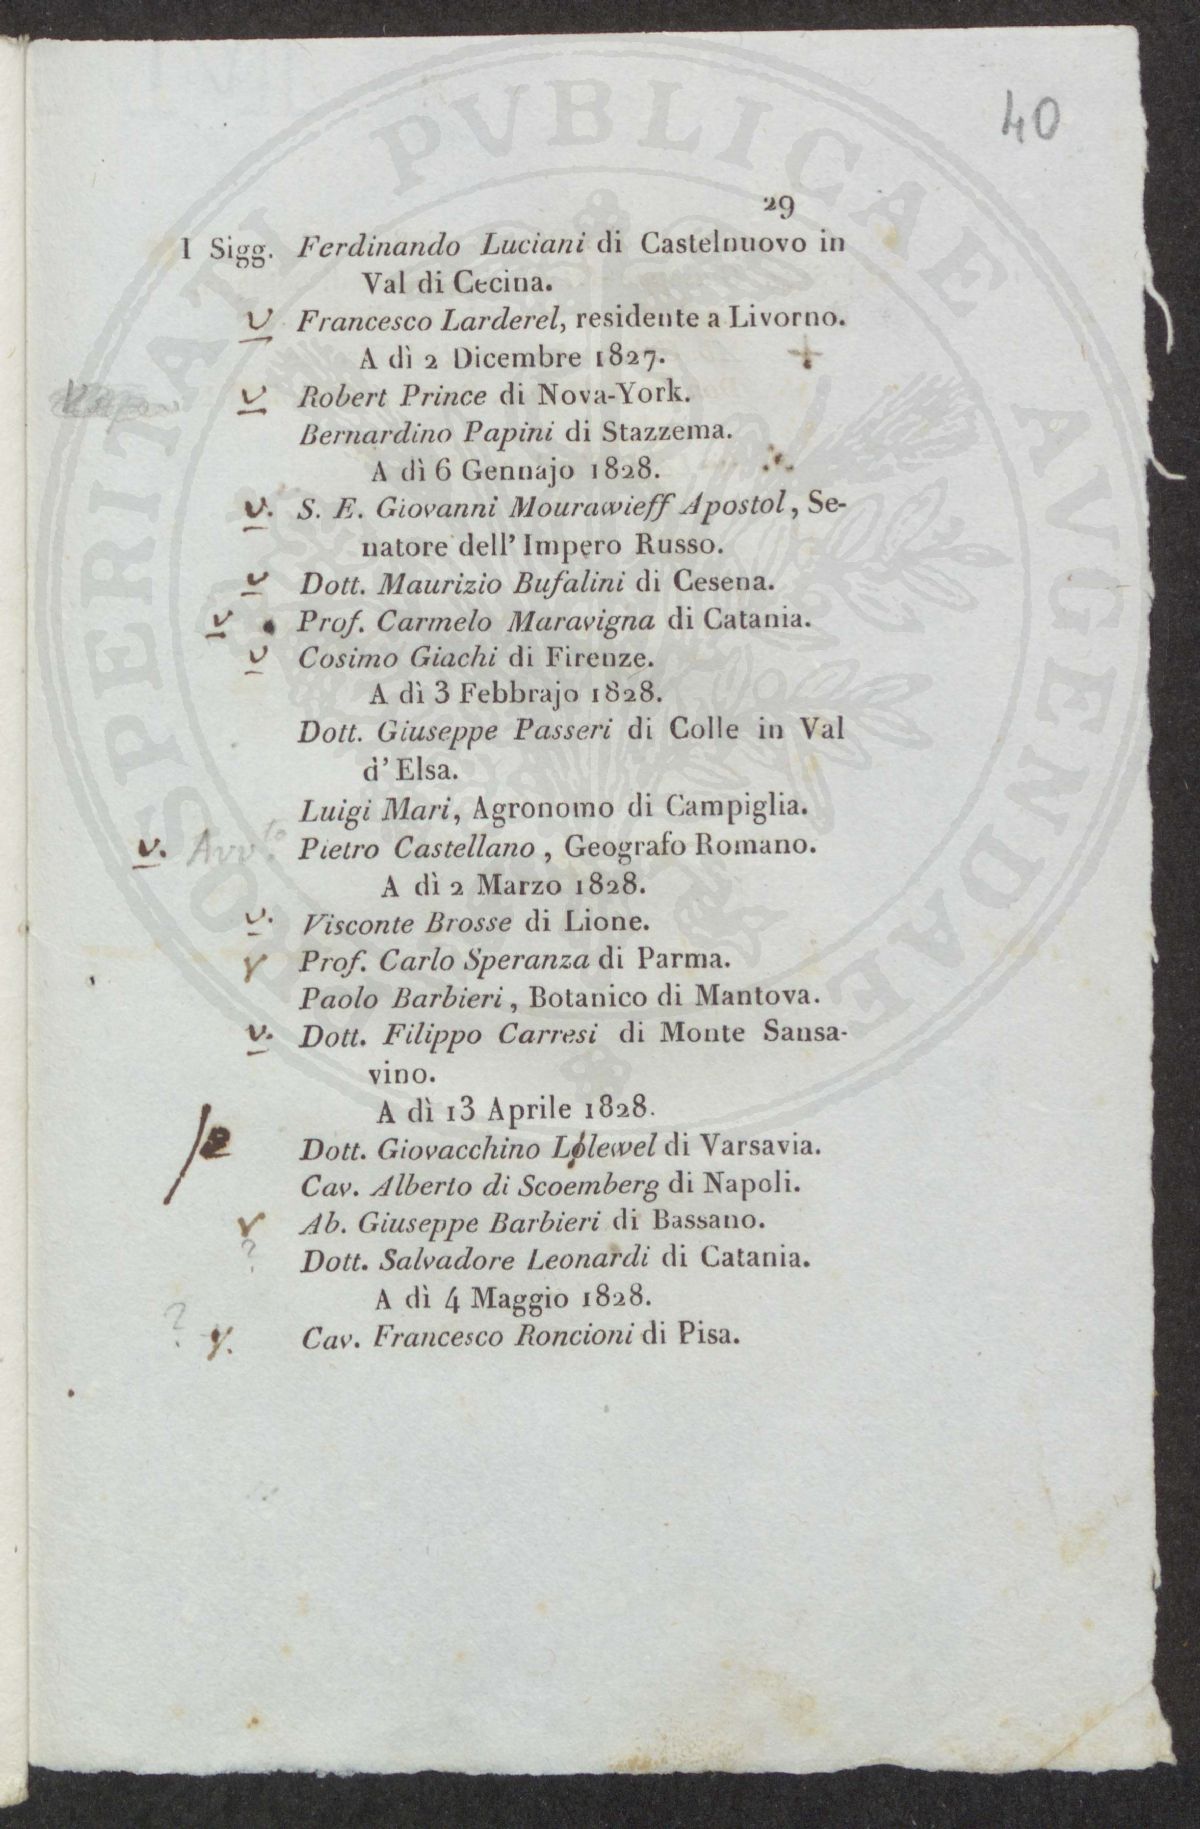 40
29
I Sigg. Ferdinando Luciani di Castelnuovo in
Val di Cecina.
v Francesco Larderel, residente a Livorno.
A dì 2 Dicembre 1827.
v Robert Prince di Nova-York.
Bernardino Papini di Stazzema.
A dì 6 Gennajo 1828.
v. S. E. Giovanni Mourawieff Apostol, Se-
natore dell' Impero Russo.
v Dott. Maurizio Bufalini di Cesena.
v Prof. Carmelo Maravigna di Catania.
v Cosimo Giachi di Firenze.
A dì 3 Febbrajo 1828.
Dott. Giuseppe Passeri di Colle in Val
d' Elsa.
Luigi Mari, Agronomo di Campiglia.
v. Avv.to Pietro Castellano, Geografo Romano.
A dì 2 Marzo 1828.
v. Visconte Brosse di Lione.
v Prof. Carlo Speranza di Parma.
Paolo Barbieri, Botanico di Mantova.
v. Dott. Filippo Carresi di Monte Sansa-
vino.
A dì 13 Aprile 1828.
Dott. Giovacchino Lelewel di Varsavia.
Cav. Alberto di Scoemberg di Napoli.
v Ab. Giuseppe Barbieri di Bassano.
? Dott. Salvadore Leonardi di Catania.
A dì 4 Maggio 1828.
? v. Cav. Francesco Roncioni di Pisa.
PROSPERITATI PVBLICAE AVGENDAE